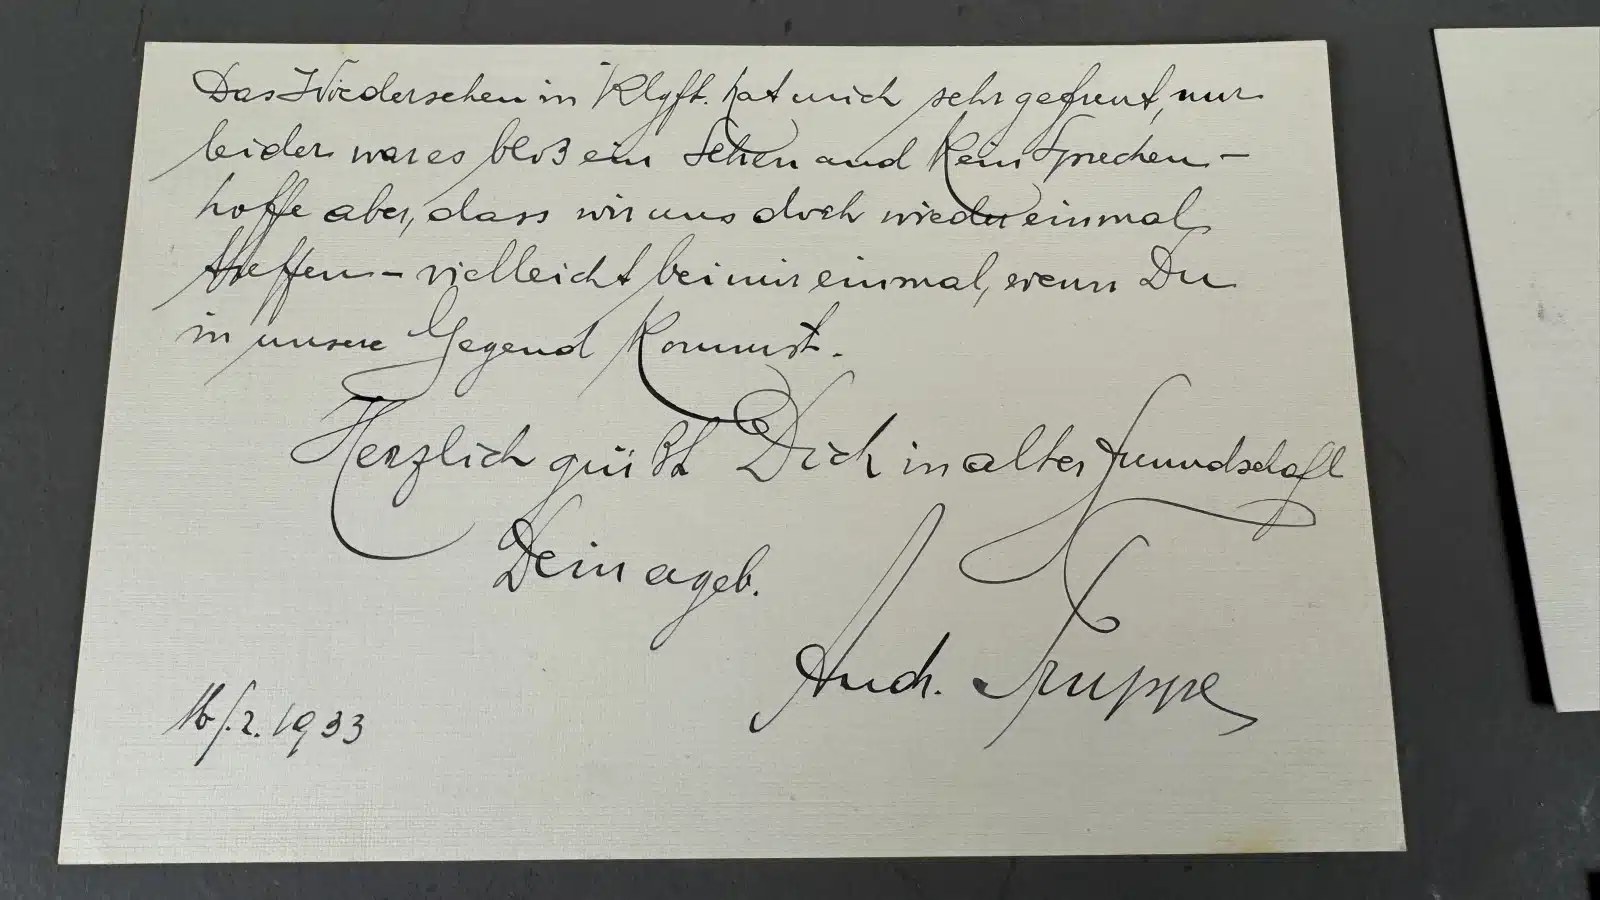 Das Wiedersehen in Klgft. hat mich sehr gefreut, nur
leider war es bloß ein Sehen und kein Sprechen –
hoffe aber, dass wir uns doch wieder einmal
treffen – vielleicht bei mir einmal, wenn Du
in unsere Gegend kommst.
Herzlich grüßt Dich in alter Freundschaft
Dein ageb.
Sruppe
16/2. 1933